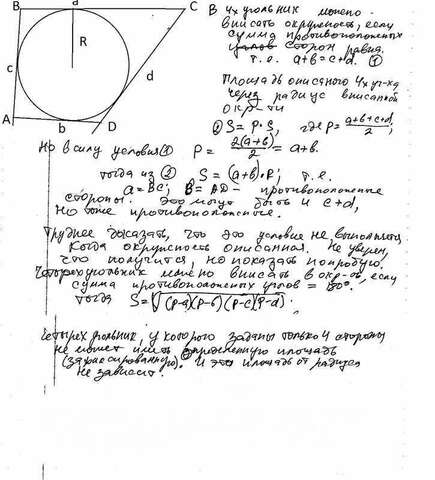 B a C
R
c d
A b D
В 4х угольник можно
вписать окружность, если
сумма противоположных
углов сторон равна.
т.е. a+b=c+d. ①
Площадь описанного 4х уг-ка
через радиус вписанной
окр-ти
② S = P·S, где P = a+b+c+d/2;
Но в силу условия① P = 2(a+b)/2 = a+b.
тогда из ② S = (a+b)·R; т.е.
a = BC; B = AD – противоположные
стороны. Это могут быть и c+d,
Но тоже противоположные.
Труднее доказать, что это условие не выполняется,
когда окружность описанная. Не уверен,
что получится, но показать попробую.
Четырехугольник можно вписать в окр-ть, если
сумма противоположных углов = 180°.
тогда S = √(p-a)(p-b)(p-c)(p-d).
Четырехугольник, у которого заданы только 4 стороны
не может иметь определенную площадь
(зафиксированную). И эта площадь от радиуса
не зависит.